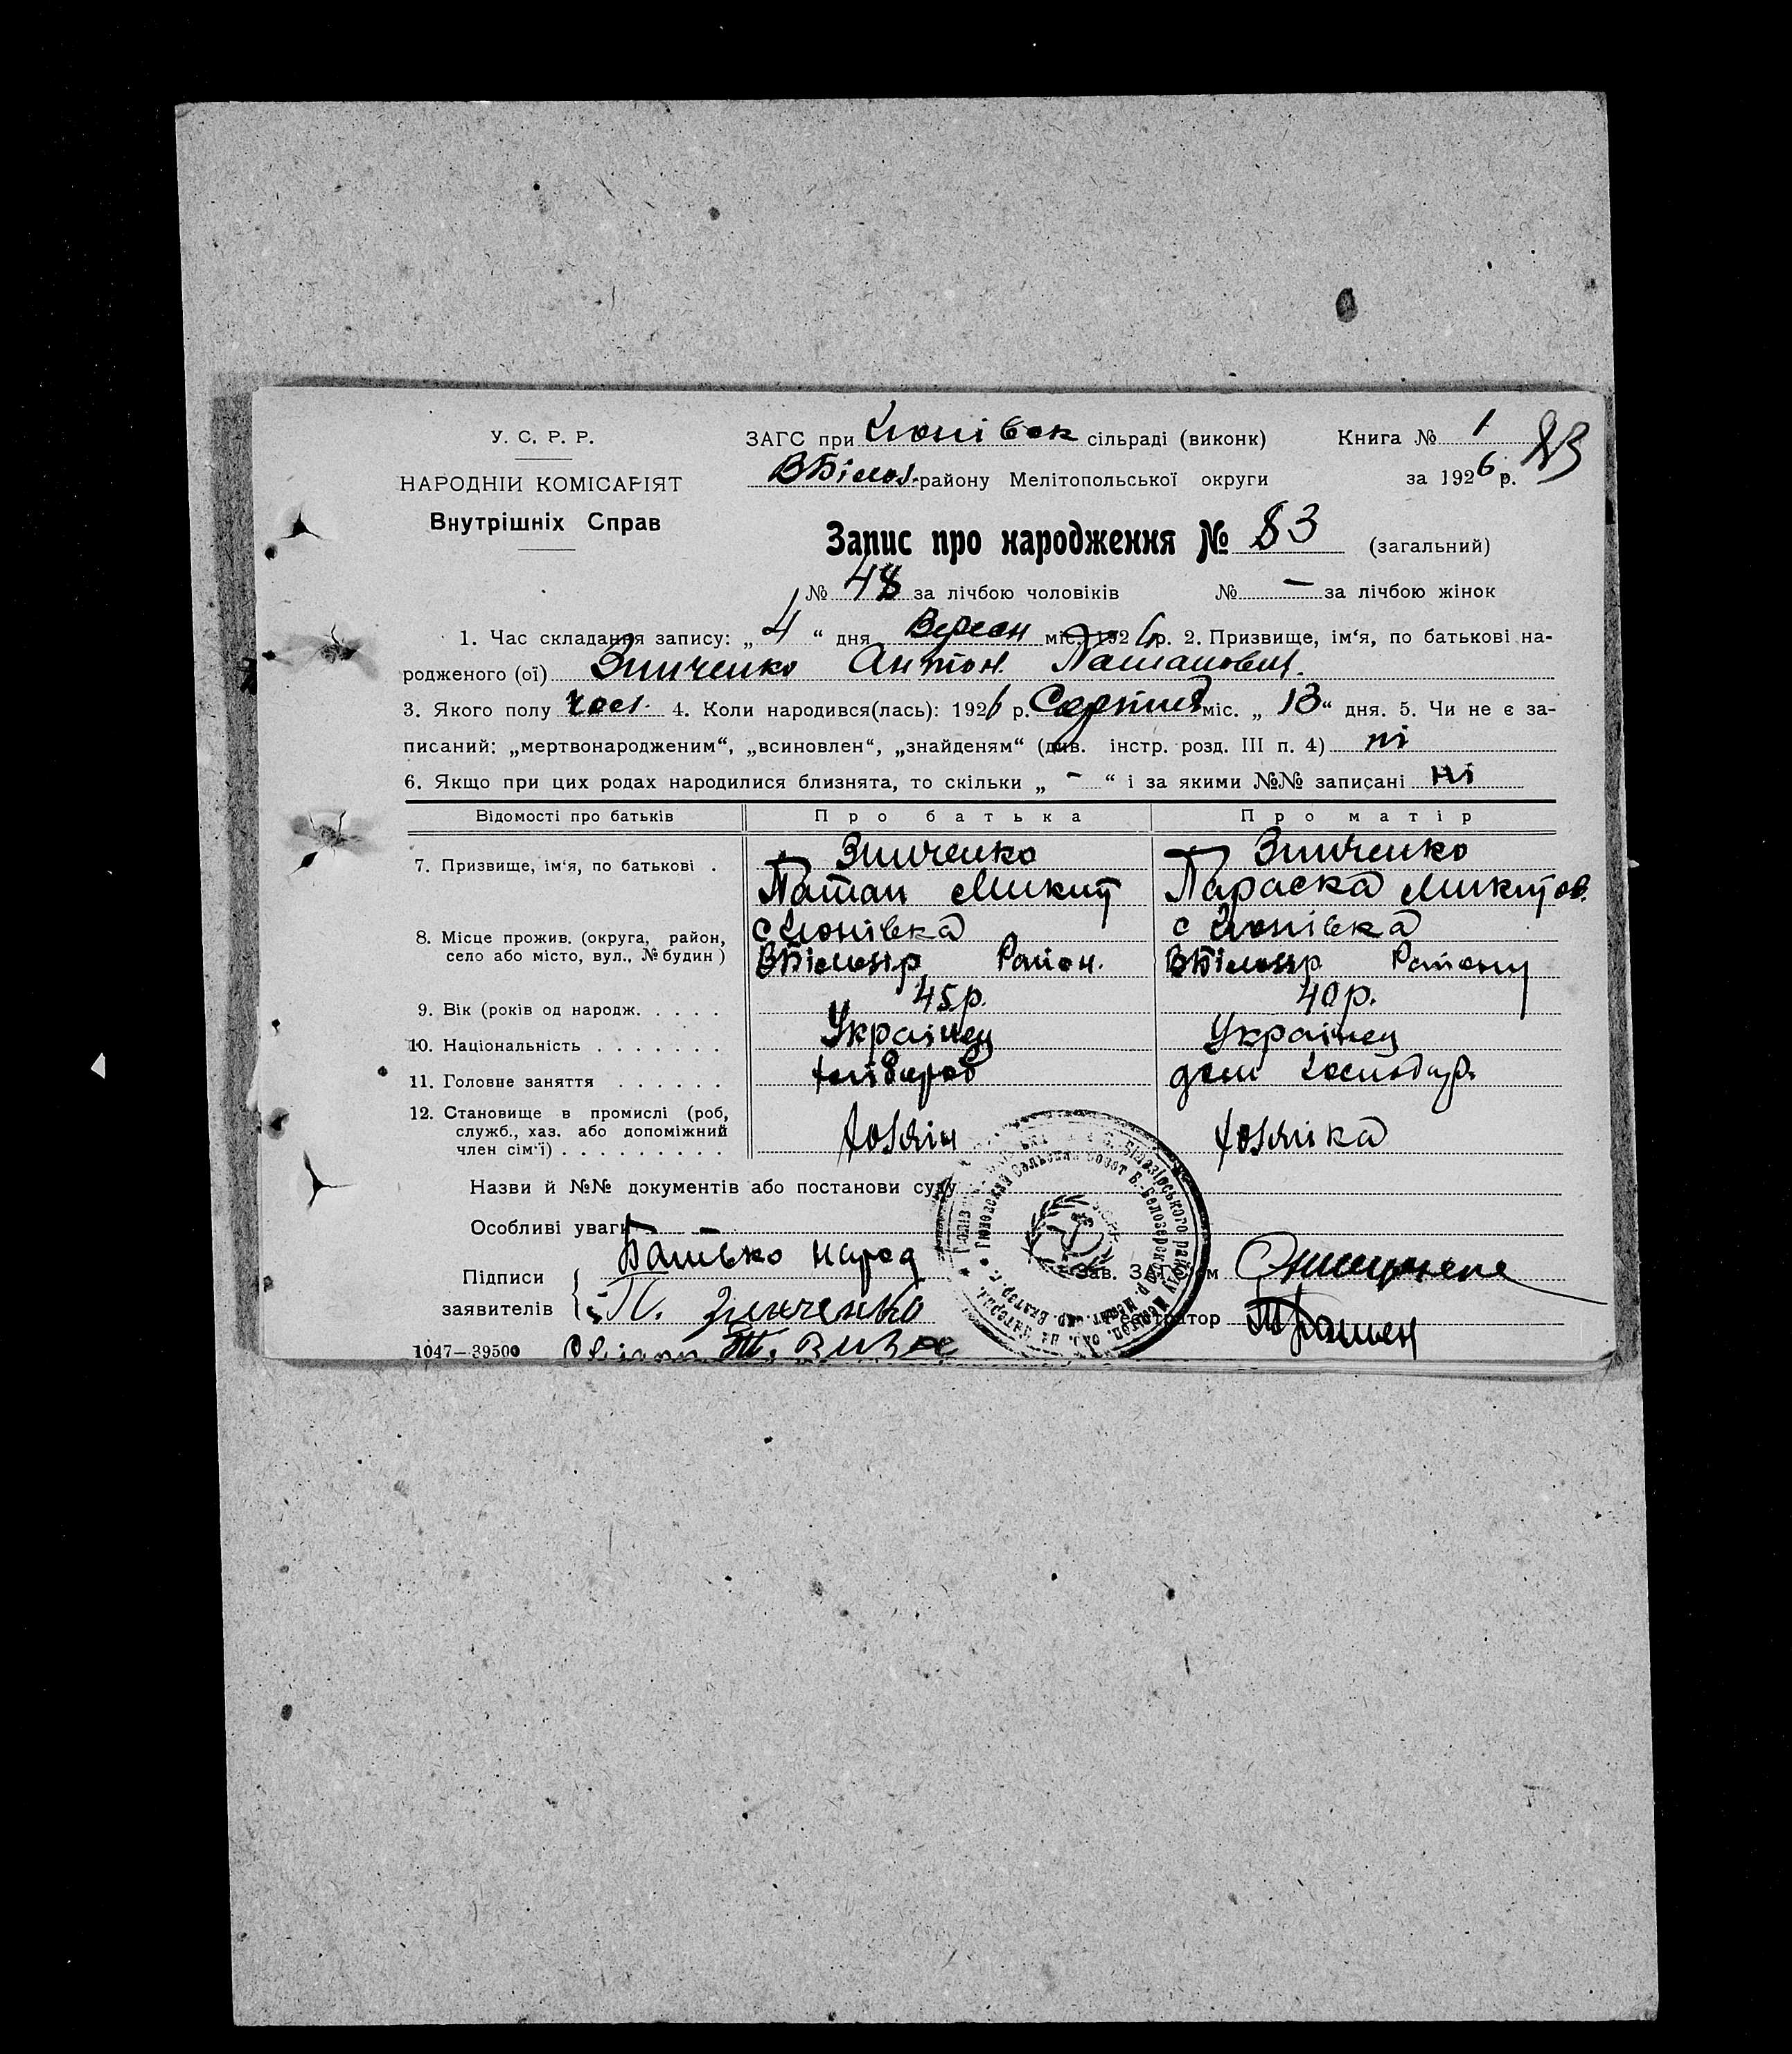 У. С. Р. Р.
НАРОДНІЙ КОМІСАРІЯТ
Внутрішніх Справ
ЗАГС при сільраді (виконк) Книга № 1
ВБілоз. району Мелітопольської округи за 1926 р.
Запис про народження № 83 (загальний)
№ 48 за лічбою чоловіків № — за лічбою жінок
1. Час складання запису: „ 4 “ дня Вересн міс. 1926 р. 2. Призвище, ім‘я, по батькові на-
родженого (ої) Зинченко Антон
3. Якого полу чол. 4. Коли народився(лась): 1926 р. Серпня міс. „ 13 “ дня. 5. Чи не є за-
писаний: „мертвонародженим“, „всиновлен“, „знайденям“ (див. інстр. розд. III п. 4) ні
6. Якщо при цих родах народилися близнята, то скільки „ - “ і за якими №№ записані ні
Відомості про батьків Про батька Про матір
7. Призвище, ім‘я, по батькові . Зинченко Зинченко
Микит Параска Микитов.
8. Місце прожив. (округа, район, село або місто, вул., № будин)
ВБілозір Район. ВБілозір Району
9. Вік (років од народж. . . . . 45р. 40р.
10. Національність . . . . . . . Українец Українец
11. Головне заняття . . . . . . хлібороб дом господар.
12. Становище в промислі (роб, служб., хаз. або допоміжний член сім‘ї) . . . . . . . . . хозяїн хозяїка
Назви й №№ документів або постанови суду
Особливі уваги —
Підписи заявителів
Батько народ
П. Зинченко
Зав. ЗАГС‘ом
Реєстратор
1047—39500